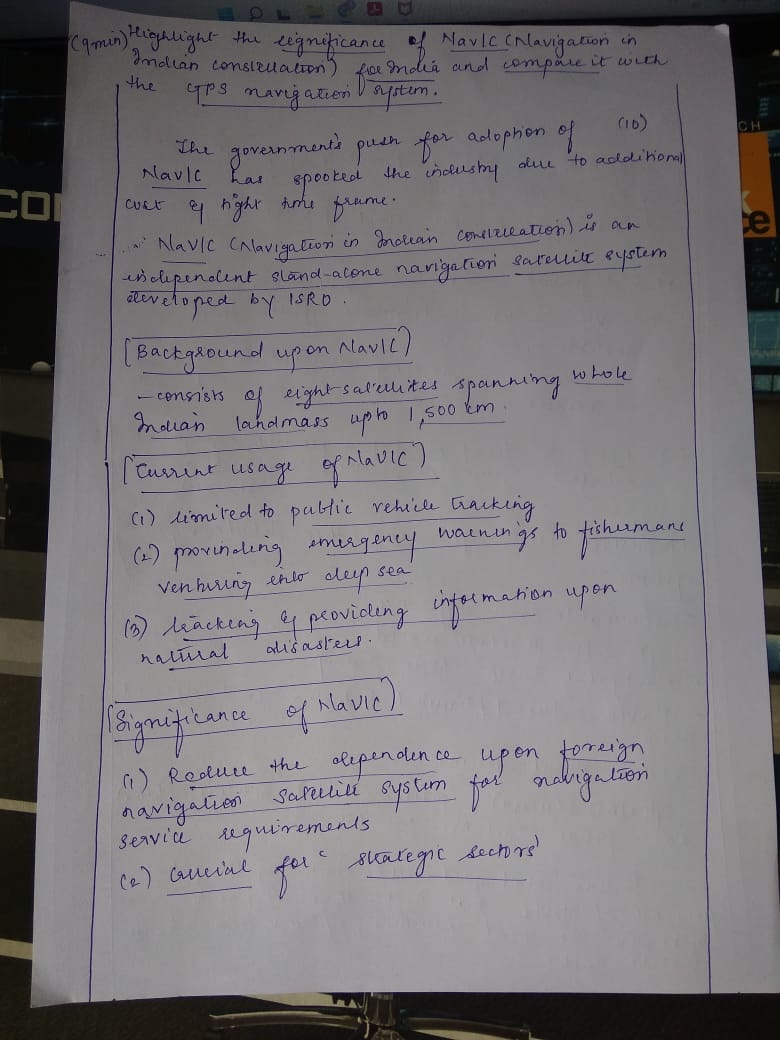 (9min) Highlight the significance of NavIC (Navigation in
Indian constellation) for India and compare it with
the GPS navigation system.
(10)
The government's push for adoption of
NavIC has spooked the industry due to additional
cost & tight time frame.
NavIC (Navigation in Indian constellation) is an
independent stand-alone navigation satellite system
developed by ISRO.
[Background upon NavIC)
- consists of eight satellites spanning whole
Indian landmass upto 1,500 km.
[Current usage of NavIC)
(1) limited to public vehicle tracking
(2) provinding emergency warnings to fishermans
venturing into deep sea
(3) tracking & providing information upon
natural disasters.
[Significance of NavIC)
(1) Reduce the dependence upon foreign
navigation satellite system for navigation
service requirements
(2) Crucial for 'strategic sectors'
COI
CH
e